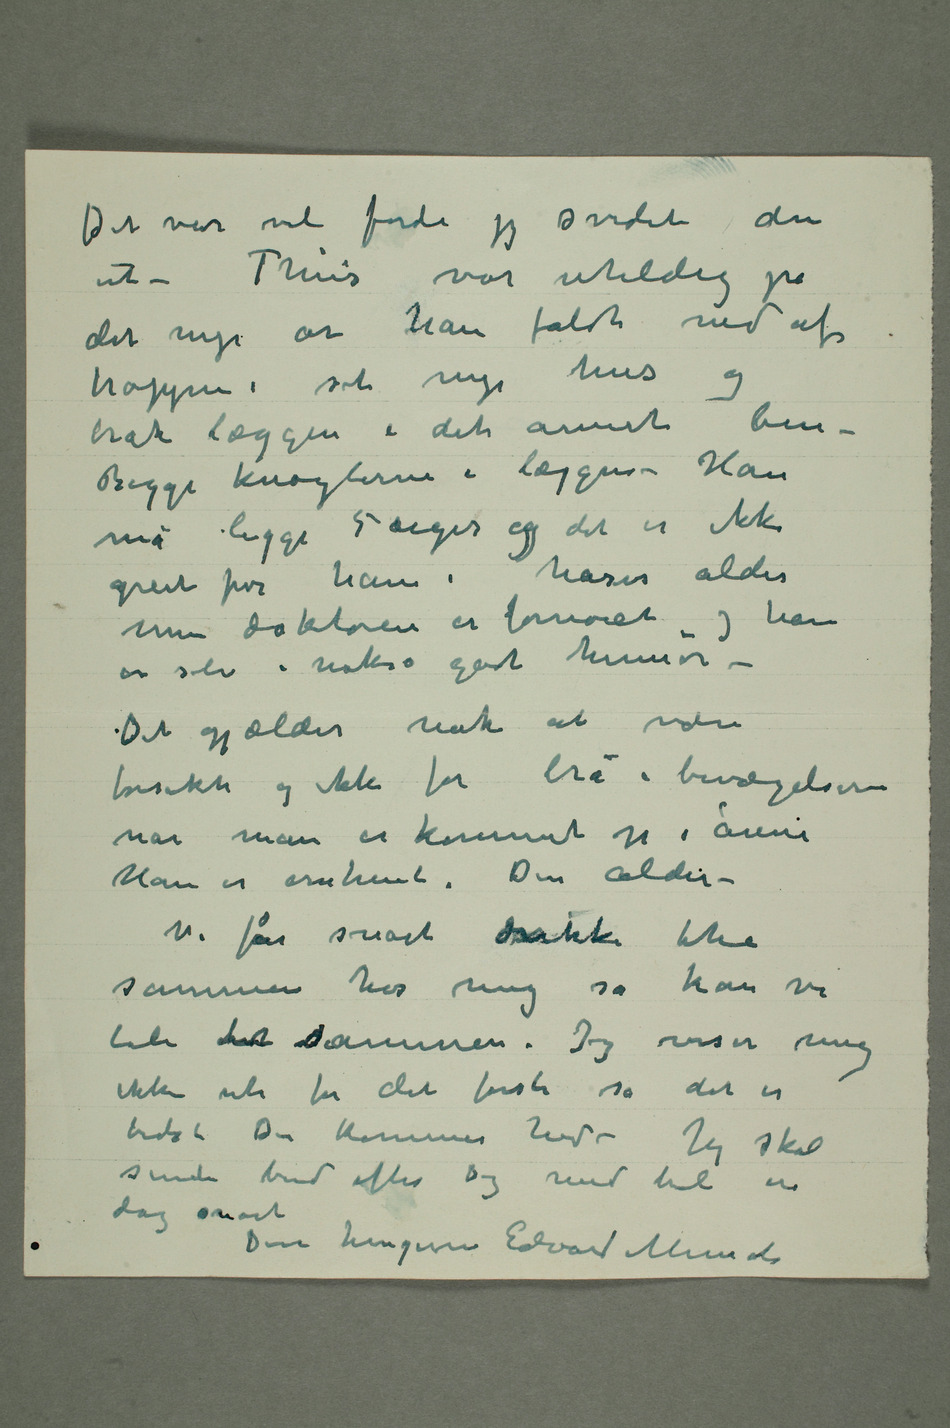 Det var vel fordi jeg svidde den
ut – Thiis var uheldig på
det nye at han faldt ned af
trappen i sit nye hus og
brak læggen i det annet ben –
Begge knoglerne i læggen – Han
må ligge 5 uger og det er ikke
greit for ham i hans alder
men doktoren er fornøiet og han
er selv i nokså godt humør –
Det gjælder nok at være
forsiktig og ikke for brå i bevægelserne
når man er kommet op i årene
Han er omtrent i Din alder –
Vi får snart drikke the
sammen hos mig så kan vi
tale sammen. Jeg viser mig
ikke ute for det første så det er
bedst Du kommer hid – Jeg skal
sende bud efter Dig med bil en
dag snart
Din hengivne Edvard Munch